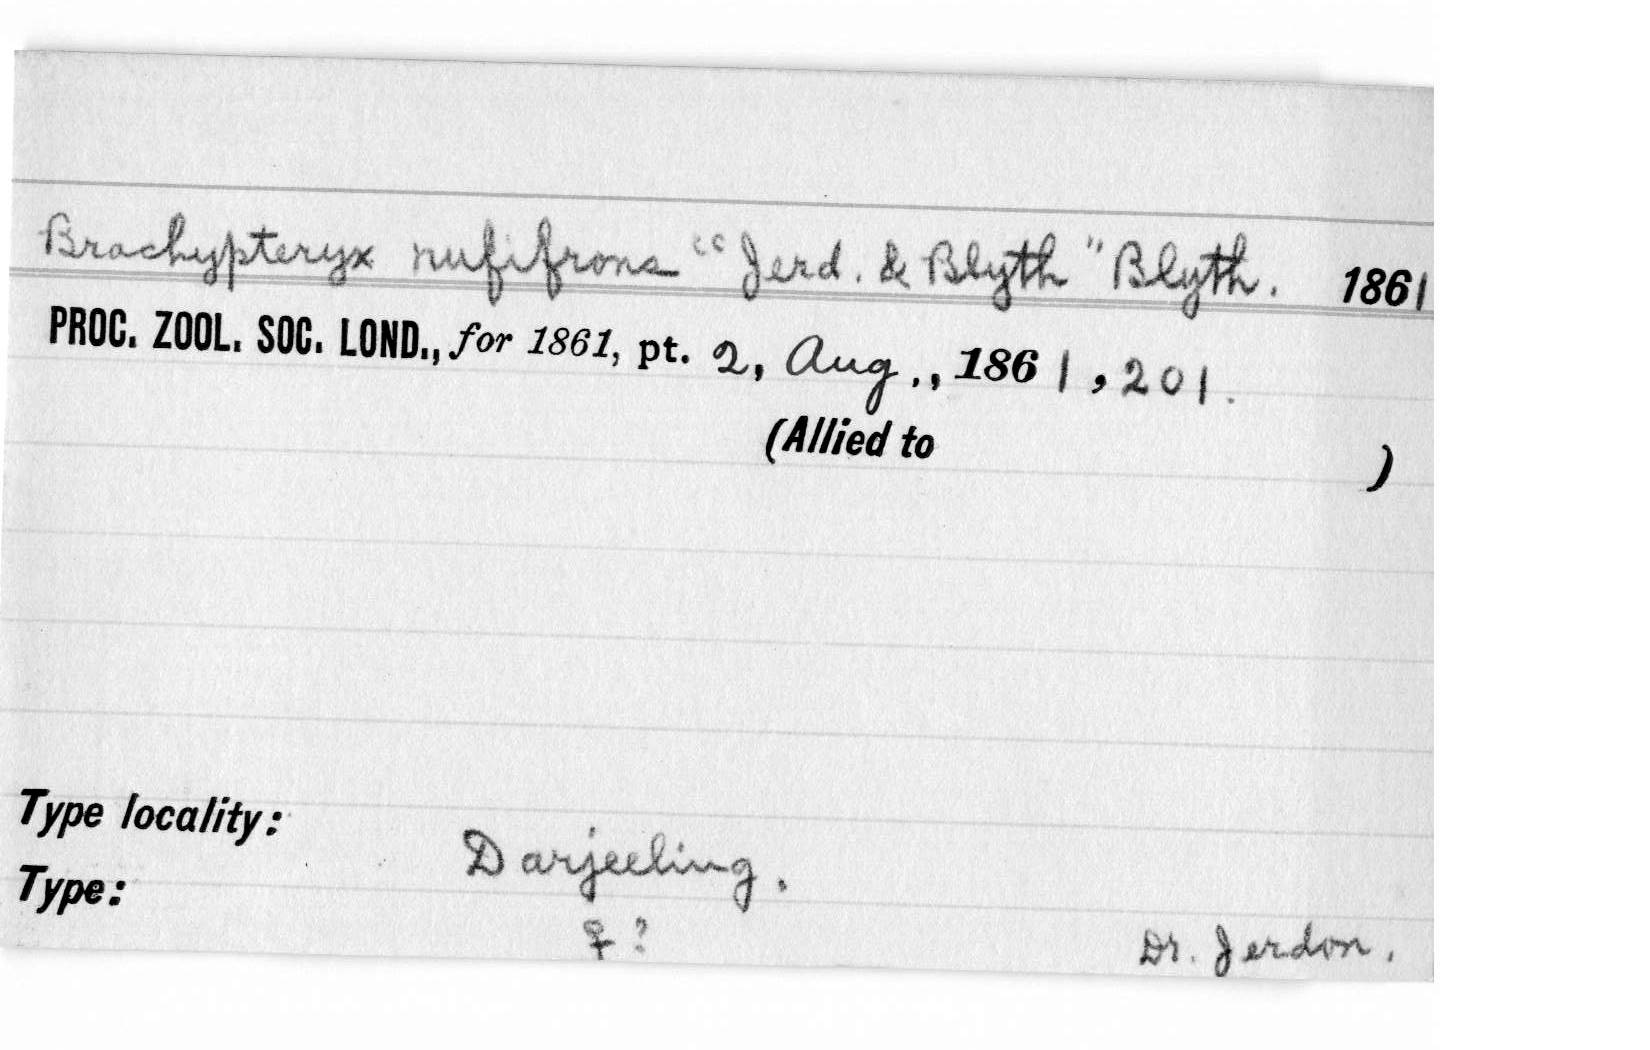 Brachypteryx rufifrons "Jerd. & Blyth" Blyth. 1861
PROC. ZOOL. SOC. LOND., for 1861, pt. 2, Aug., 1861, 201.
(Allied to )
Type locality: Darjeeling.
Type: ♀? Dr. Jerdon.